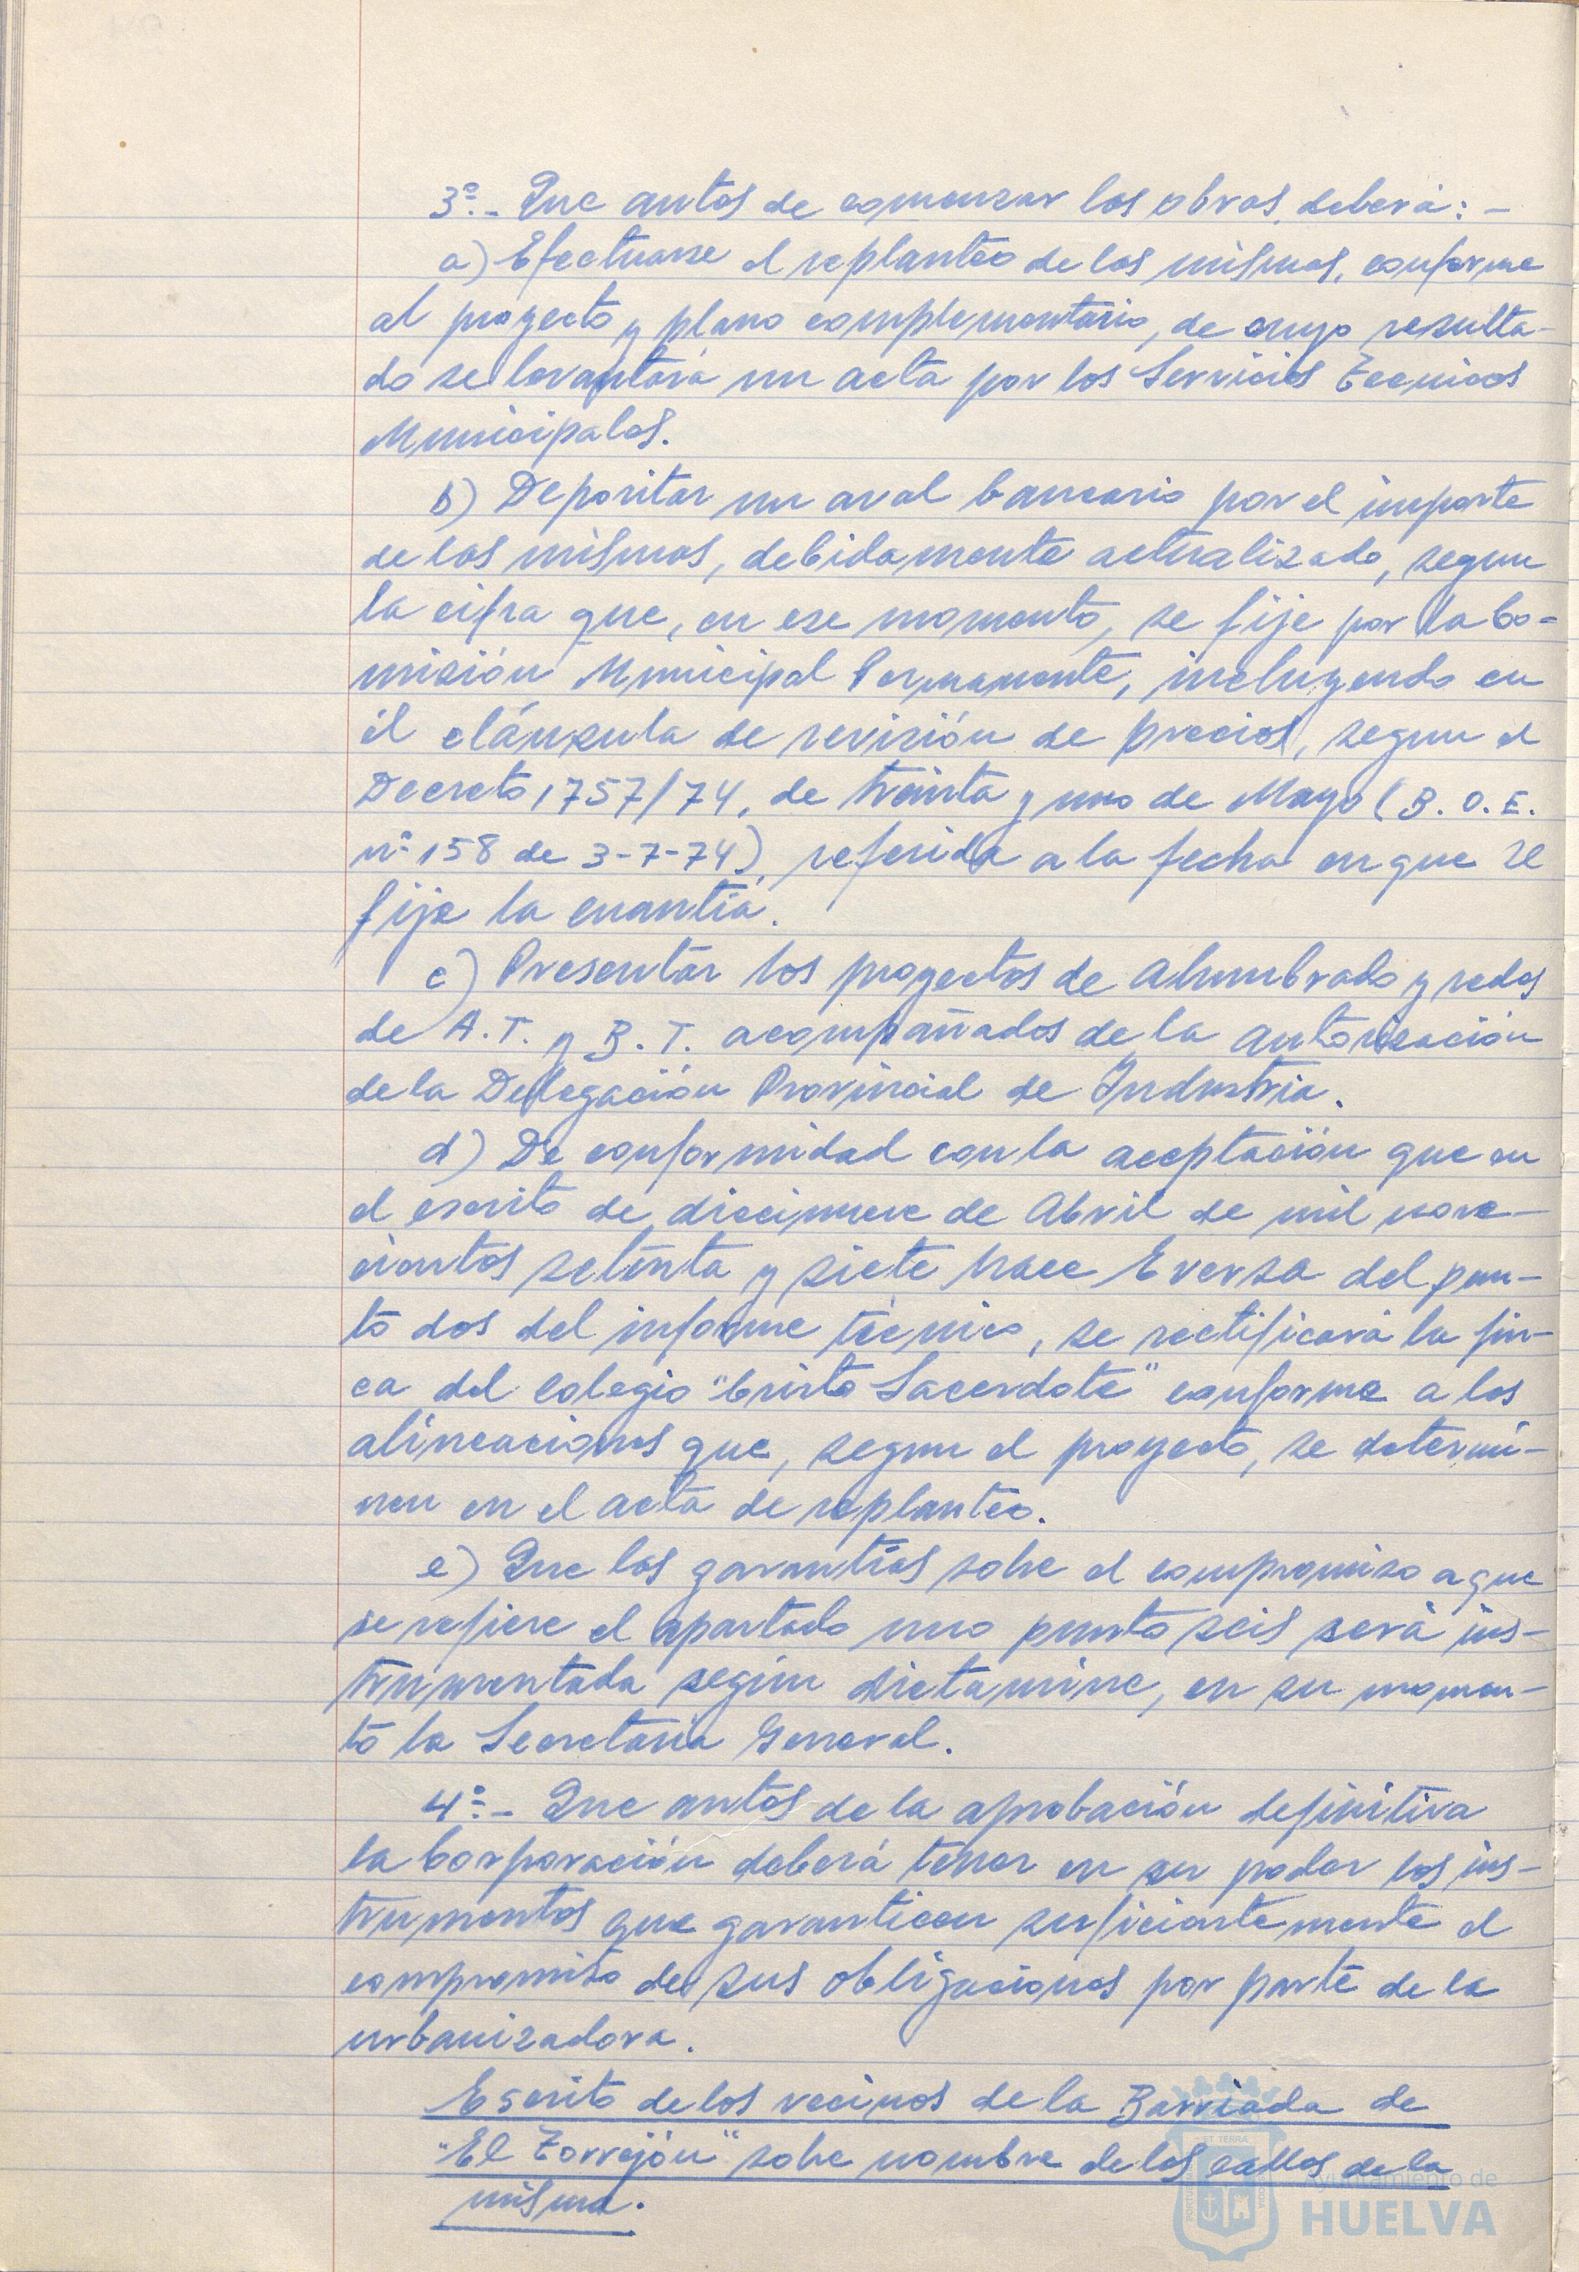 3º.- Que antes de comenzar las obras, deberá: -
a) Efectuarse el replanteo de las mismas, conforme
al proyecto y plano complementario, de cuyo resulta-
do se levantará un acta por los Servicios Tecnicos
Municipales.
b) Depositar un aval bancario por el importe
de las mismas, debidamente actualizado, segun
la cifra que, en ese momento, se fije por la Co-
misión Municipal Permanente, incluyendo en
él cláusula de revisión de precios, segun el
Decreto 1757/74, de treinta y uno de Mayo (B.O.E.
nº 158 de 3-7-74), referida a la fecha en que se
fije la cuantía.
c) Presentar los proyectos de Alumbrado y redes
de A.T. y B.T. acompañados de la autorización
de la Delegación Provincial de Industria.
d) De conformidad con la aceptación que en
el escrito de diecinueve de Abril de mil nove-
cientos setenta y siete hace Eversa del pun-
to dos del informe técnico, se rectificará la fin-
ca del colegio "Cristo Sacerdote" conforme a las
alineaciones que, segun el proyecto, se determi-
nen en el acta de replanteo.
e) Que las garantías sobre el compromiso a que
se refiere el apartado uno punto seis será ins-
trumentada según dictamine, en su momen-
to la Secretaría General.
4º.- Que antes de la aprobación definitiva
la Corporación deberá tener en su poder los ins-
trumentos que garanticen suficientemente el
compromiso de sus obligaciones por parte de la
urbanizadora.
Escrito de los vecinos de la Barriada de
"El Torrejón" sobre nombre de las calles de la
misma.
Ayuntamiento de
HUELVA